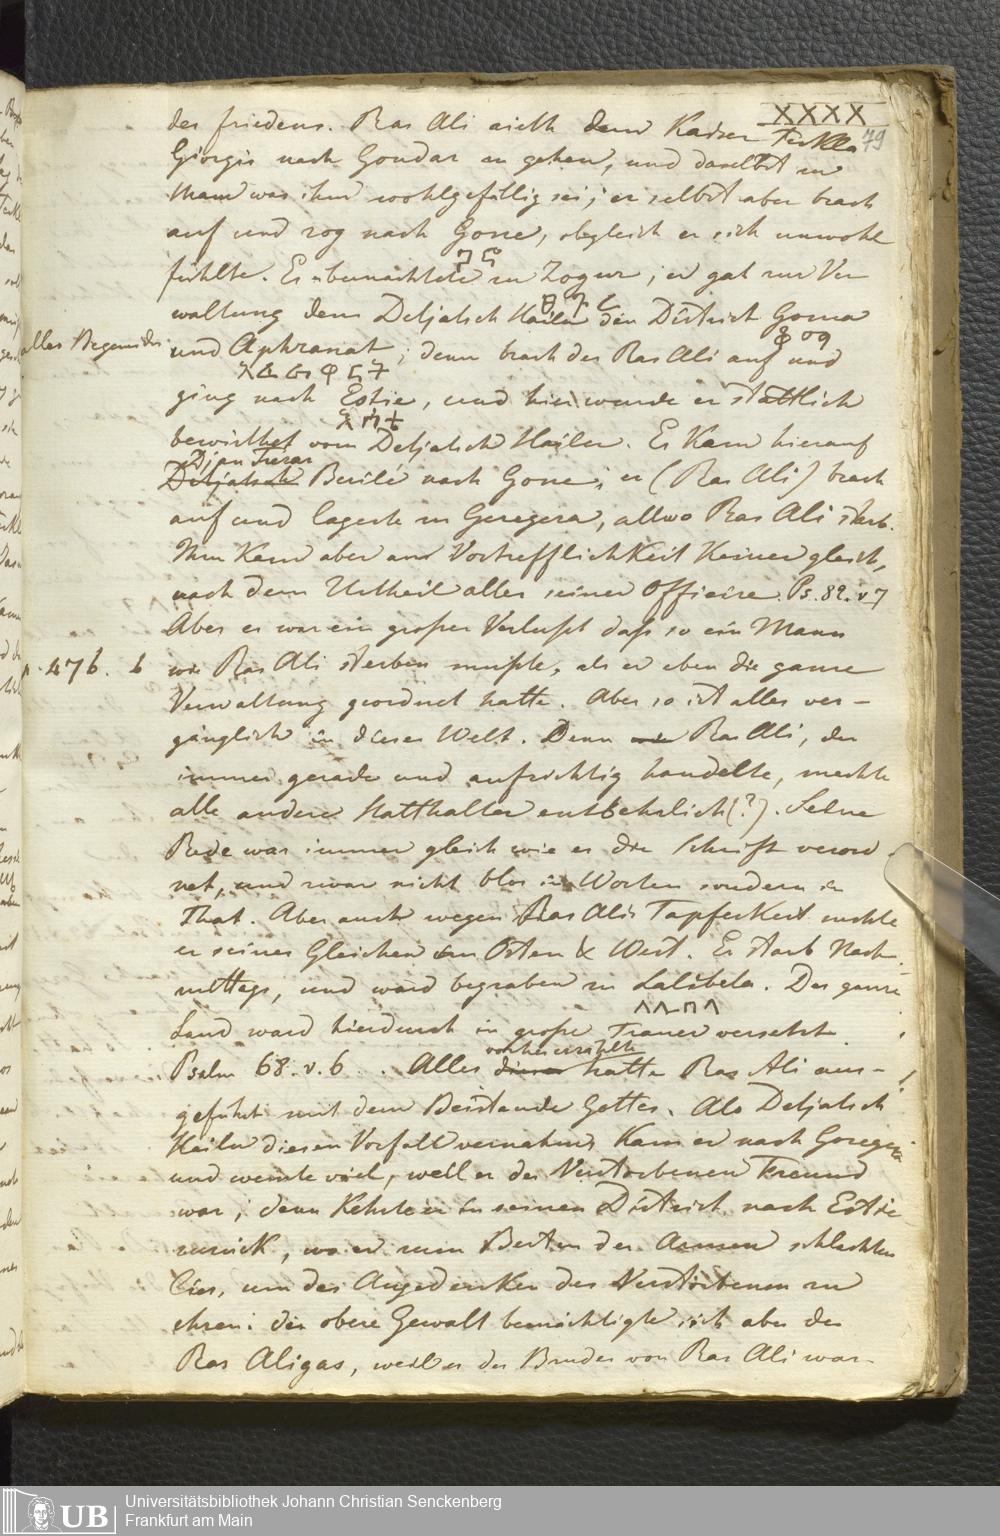 XXXX
79
des friedens. Ras Ali rieth dem Kaiser Tekla
Giorgis nach Gondar zu gehen, und daselbst zu
thun was ihm wohlgefällig sei; er selbst aber brach
auf und zog nach Gone, obgleich er sich unwohl
fühlte. Er übernachtete in Zogur; er gab zur Ver
waltung dem Detjatsch Hailu den District Goma
alles Begemder
und Aphranat; denn brach der Ras Ali auf und
ging nach Estie, und hier wurde er stattlich
bewirthet vom Detjatsch Hailu. Es kam hierauf
Djan Tserar
Detjatsch Berilé nach Gone; er (Ras Ali) brach
auf und lagerte in Geregera, allwo Ras Ali starb.
Ihm kam aber an Vortrefflichkeit Keiner gleich,
nach dem Urtheil aller seiner Officiere. Ps. 82. v 7
Aber es war ein grosser Verlust dass so ein Mann
p. 476. b
wie Ras Ali sterben musste, als er eben die ganze
Verwaltung geordnet hatte. Aber so ist alles ver-
gänglich in dieser Welt. Denn Ras Ali, der
immer gerade und aufrichtig handelte, machte
alle andere Statthalter entbehrlich (?). Seine
Rede war immer gleich wie es die Schrift verord
net, und zwar nicht blos in Worten sondern in
That. Aber auch wegen Ras Ali's Tapferkeit suchte
er seines Gleichen in Osten & West. Er starb Nach-
mittags, und ward begraben in Lalibela. Das ganze
ላሊበላ
Land ward hierdurch in grosse Trauer versetzt
Psalm 68. v. 6. Alles
vorher erzählte
dieses hatte Ras Ali aus-
geführt mit dem Beistande Gottes. Als Detjatsch
Hailu diesen Vorfall vernahm, kam er nach Geregera
und weinte viel, weil er des Verstorbenen Freund
war; dann kehrte er in seinen District nach Estie
zurück, wo er zum Besten der Armen schlachten
liess, um das Angedenken des Verstorbenen zu
ehren. die obere Gewalt bemächtigte sich aber der
Ras Aligas, weil er der Bruder von Ras Ali war.
Universitätsbibliothek Johann Christian Senckenberg
Frankfurt am Main
UB